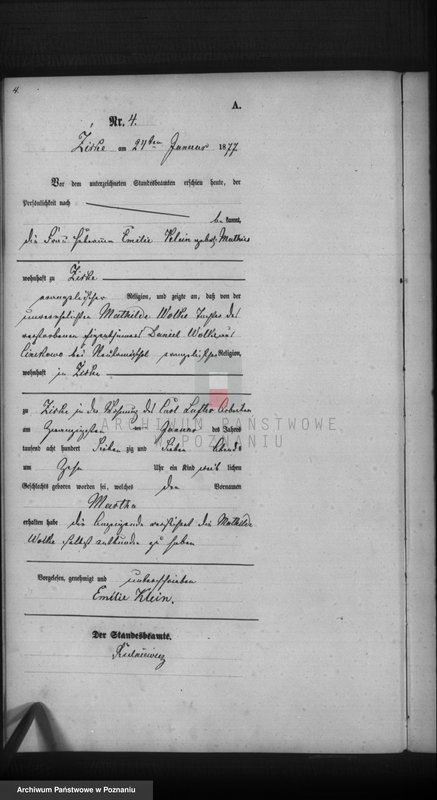 4.
A.
Nr. 4.
Zirke am 24ten Januar 1877
Vor dem unterzeichneten Standesbeamten erschien heute, der
Persönlichkeit nach
be kannt,
die Frau Hebamme Emilie Klein geb. Mathias
wohnhaft zu Zirke
evangelischer Religion, und zeigte an, daß von der
unverehelichten Mathilde Wolke Tochter des
verstorbenen Daniel Wolke aus
bei evangelischer Religion,
wohnhaft in Zirke
zu Zirke in der Wohnung des Carl
am zwanzigsten Januar des Jahres
tausend acht hundert sieben zig und sieben Abends
um Zehn Uhr ein Kind weib lichen
Geschlechts geboren worden sei, welches den Vornamen
Martha
erhalten habe die Anzeigende versichert die Mathilde
Wolke selbst entbunden zu haben
Vorgelesen, genehmigt und unterschrieben
Emilie Klein.
Der Standesbeamte.
ARCHIWUM PAŃSTWOWE
W POZNANIU
Archiwum Państwowe w Poznaniu